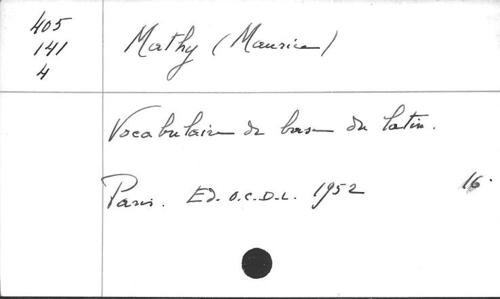 405
141
4
Mathy (Maurice)
Vocabulaire de base du latin.
Paris. Ed. O.C.D.L. 1952 16.